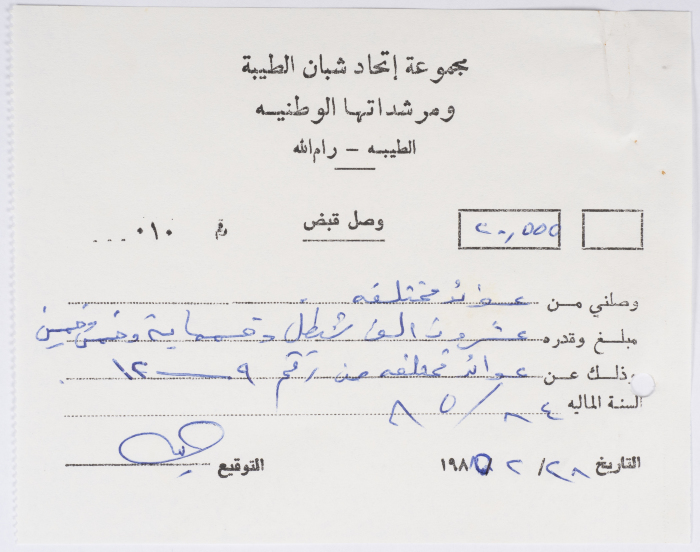 مجموعة إتحاد شبان الطيبة
ومرشداتها الوطنيه
الطيبه - رام الله
وصل قبض
رقم ٠١٠
٢٠,٥٥٥
وصلني من عوائد مختلفه
مبلغ وقدره عشرون الف شيقل وخمسماية وخمس وخمسين
وذلك عن عوائد مختلفه من رقم ٩ — ١٢
السنة الماليه ٨٤/٨٥
التاريخ ٢٨/ ٢ ١٩٨٥
التوقيع